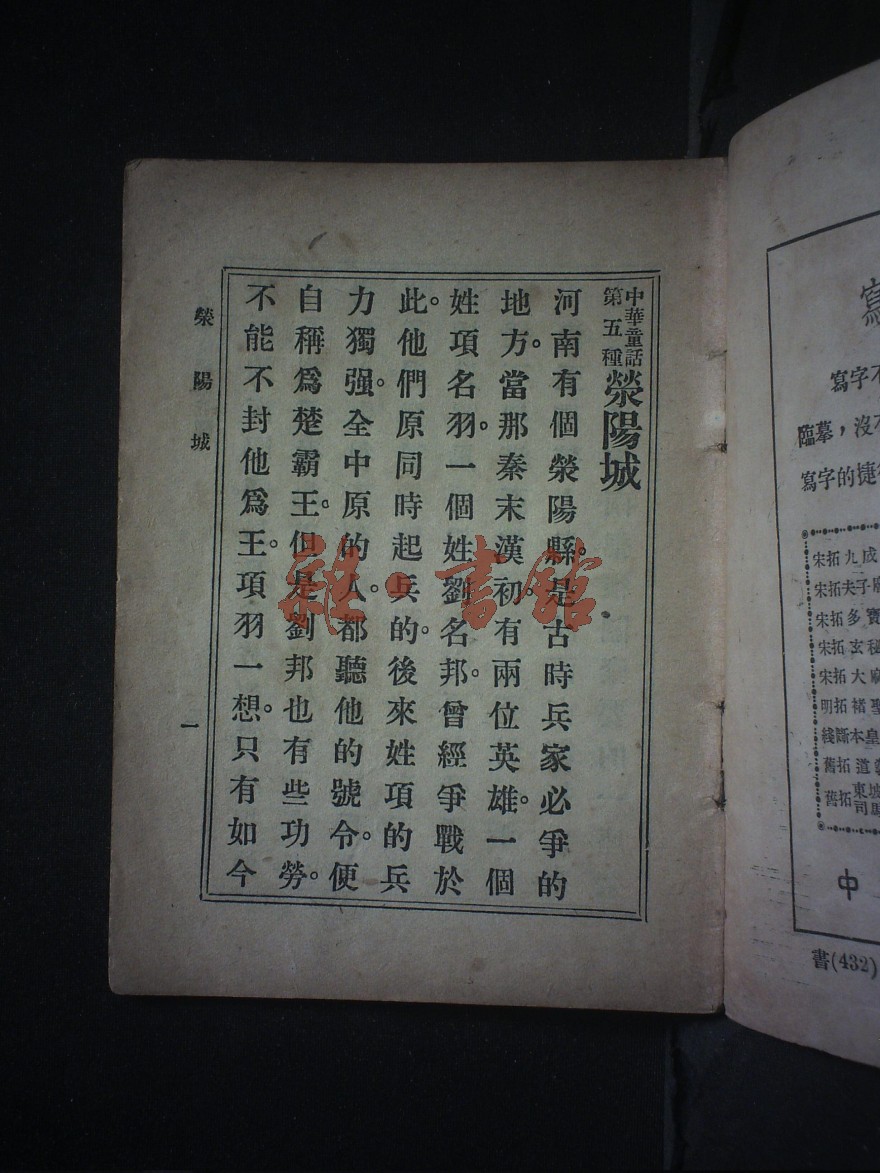 中華童話
第五種
滎陽城
河南有個滎陽縣。是古時兵家必爭的
地方。當那秦末漢初。有兩位英雄。一個
姓項名羽。一個姓劉名邦。曾經爭戰於
此。他們原同時起兵的。後來姓項的兵
力獨强。全中原的人。都聽他的號令。便
自稱爲楚霸王。但是劉邦也有些功勞。
不能不封他爲王。項羽一想。只有如今
滎陽城
一
寫字不
臨摹，沒
寫字的捷
宋拓九成
宋拓夫子廟
宋拓多寶
宋拓玄秘
宋拓大麻
明拓褚聖
舊拓道
舊拓東坡
司馬
中
書(432)
書館